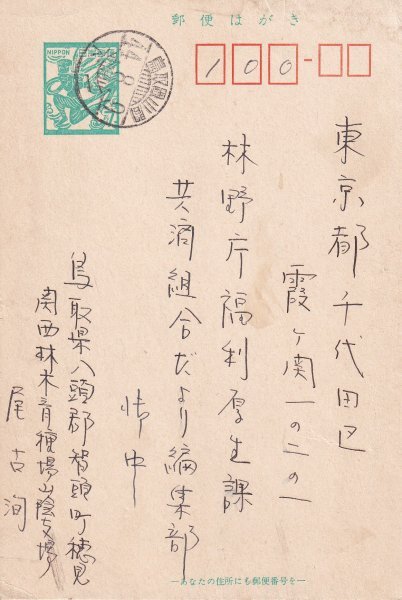 郵便はがき
NIPPON
100
東京都千代田区
霞ヶ関一の二の一
林野庁福利厚生課
共済組合だより編集部
御中
鳥取県八頭郡智頭町穂見
関西林木育種場山陰支場
尾古洵
―あなたの住所にも郵便番号を―